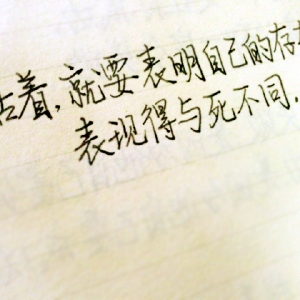 活着，就要表明自己的存
表现得与死不同.